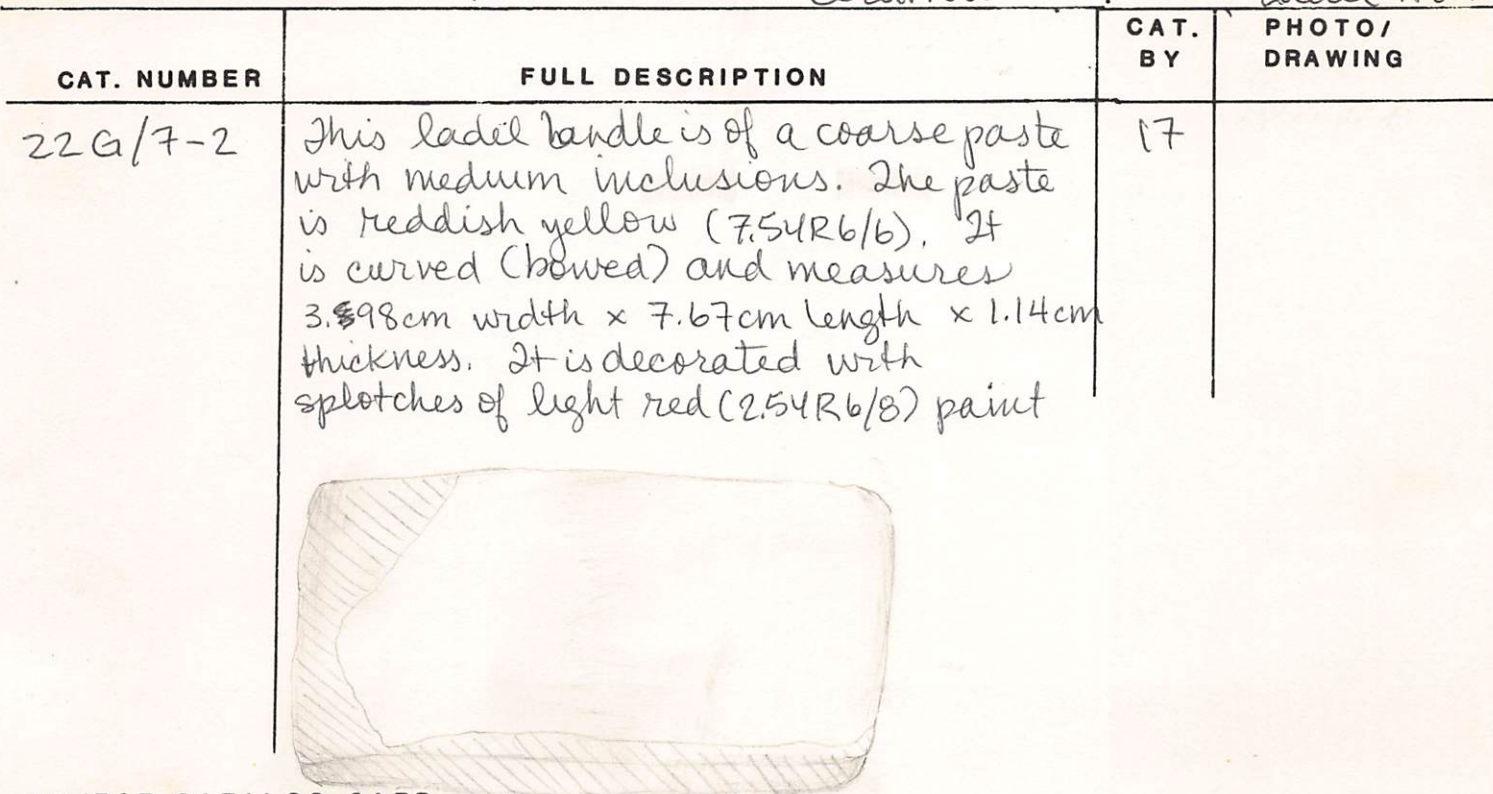 CAT. NUMBER
FULL DESCRIPTION
CAT.
BY
PHOTO/
DRAWING
22G/7-2
This ladel handle is of a coarse paste
with medium inclusions. The paste
is reddish yellow (7.5YR6/6). It
is curved (bowed) and measures
3.98cm width x 7.67cm length x 1.14cm
thickness. It is decorated with
splotches of light red (2.5YR6/8) paint
17